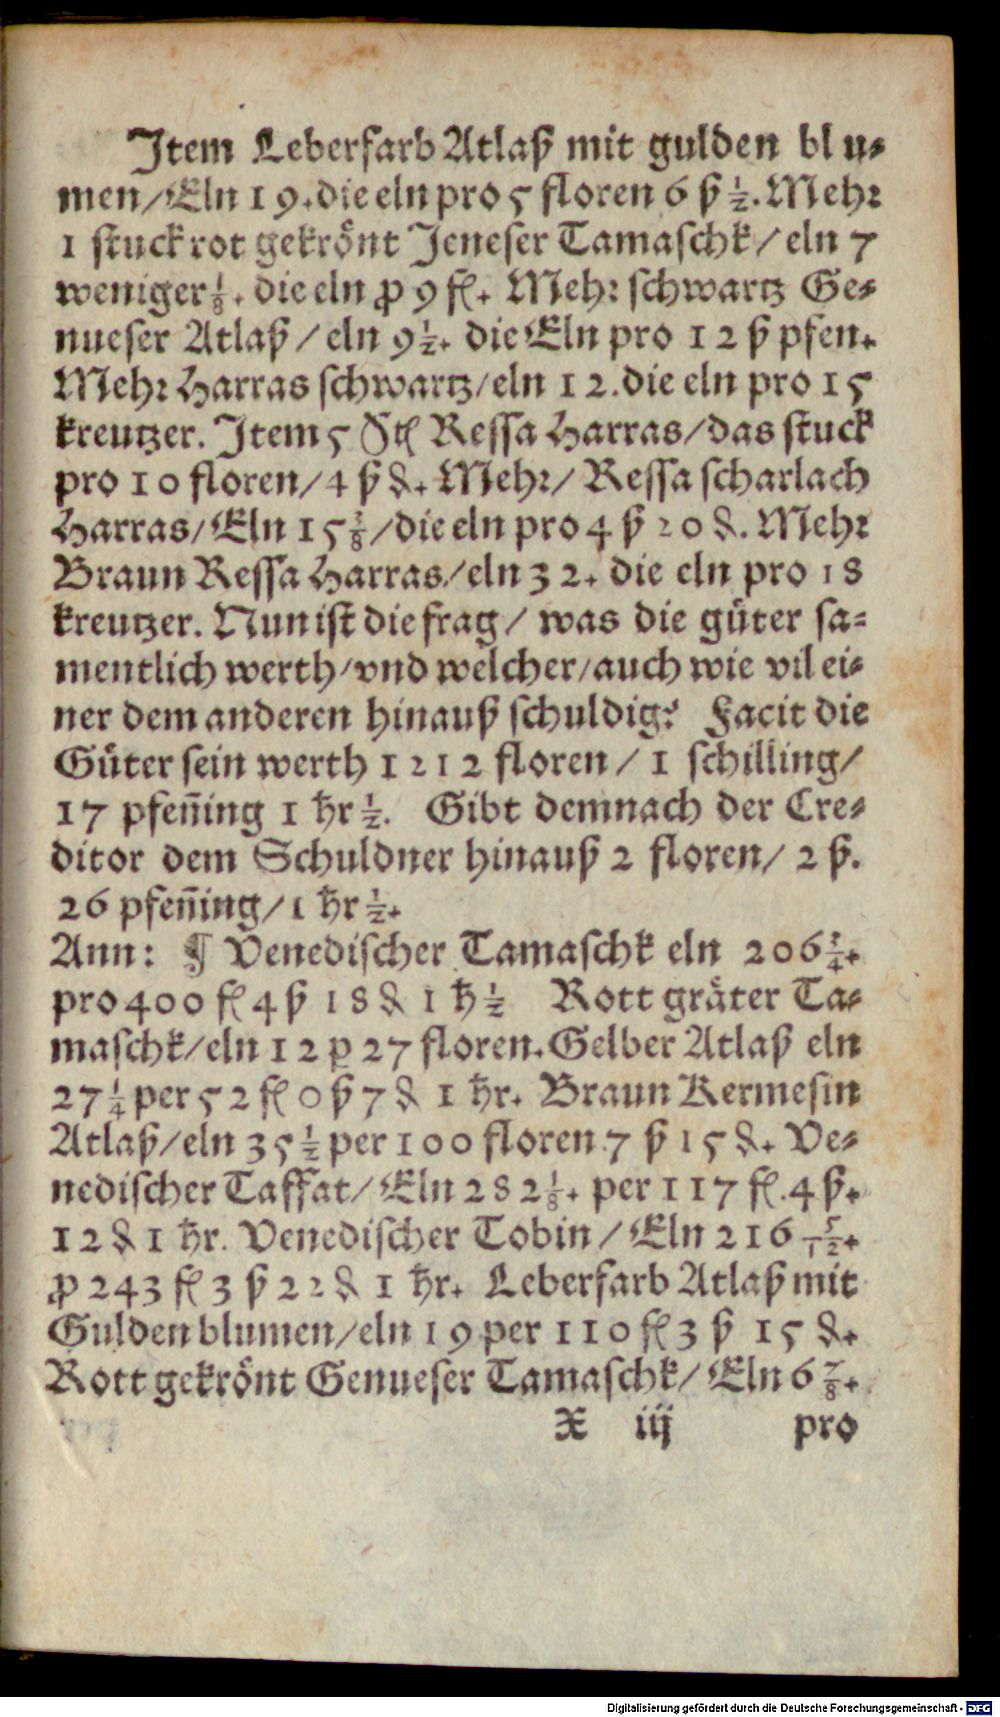 Item Leberfarb Atlaß mit gulden blu⸗
men/Eln 19. die eln pro 5 floren 6 ß ½. Mehr
1 stuck rot gekrönt Jeneser Tamaschk/ eln 7
weniger ⅛. die eln ꝓ 9 fl. Mehr schwartz Ge⸗
nueser Atlaß/ eln 9½. die Eln pro 12 ß pfen.
Mehr Harras schwartz/eln 12. die eln pro 15
kreutzer. Item 5 Stl Ressa Harras/das stuck
pro 10 floren/4 ß ₰. Mehr/ Ressa scharlach
Harras/ Eln 15⅜/die eln pro 4 ß 20 ₰. Mehr
Braun Ressa Harras/eln 32. die eln pro 18
kreutzer. Nun ist die frag/ was die güter sa⸗
mentlich werth/vnd welcher/auch wie vil ei⸗
ner dem anderen hinauß schuldig? Facit die
Güter sein werth 1212 floren/ 1 schilling/
17 pfen̄ing 1 hr ½. Gibt demnach der Cre⸗
ditor dem Schuldner hinauß 2 floren/ 2 ß.
26 pfen̄ing/1 hr ½.
Ann: ¶ Venedischer Tamaschk eln 206¾.
pro 400 fl 4 ß 18 ₰ 1 h ½ Rott gräter Ta⸗
maschk/eln 12 ꝑ 27 floren. Gelber Atlaß eln
27¼ per 52 fl 0 ß 7 ₰ 1 hr. Braun Kermesin
Atlaß/eln 35½ per 100 floren 7 ß 15 ₰. Ve⸗
nedischer Taffat/ Eln 282⅛. per 117 fl. 4 ß.
12 ₰ 1 hr. Venedischer Tobin/ Eln 216 5/12.
ꝓ 243 fl 3 ß 22 ₰ 1 hr. Leberfarb Atlaß mit
Gulden blumen/eln 19 per 110 fl 3 ß 15 ₰.
Rott gekrönt Genueser Tamaschk/ Eln 6⅞.
X iij pro
Digitalisierung gefördert durch die Deutsche Forschungsgemeinschaft - DFG